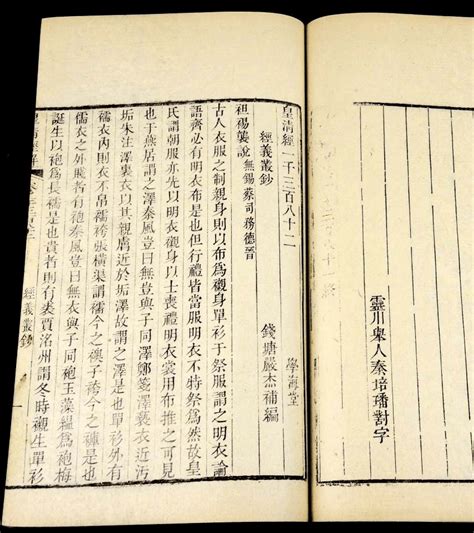 靈川舉人秦培璠對字
皇清經一千三百八十二 學海堂
經義叢鈔 錢塘嚴杰補編
袒裼襲說 無錫蔡司務德晉
古人衣服之制親身則以布爲襯身單衫于祭服謂之明衣論
語齊必有明衣布是也但行禮皆當服明衣不特祭爲然故皇
氏謂朝服亦先以明衣襯身以士喪禮明衣裳用布推之可見
也于燕居謂之澤秦風豈曰無衣與子同澤鄭箋澤褻衣近汚
垢朱注澤裏衣以其親膚近於垢澤故謂之澤也是單衫外有
襦衣內則衣不帛襦袴張橫渠謂襦今之襖子袴今之褲是也
襦衣之外賤者有袍秦風豈曰無衣與子同袍玉藻縕爲袍梅
誕生以袍爲長襦是也貴者則有裘賈洺州謂冬時襯生單衫
皇清經解 經義叢鈔